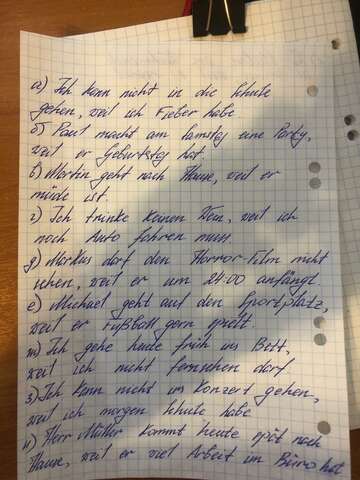 а) Ich kann nicht in die Schule
gehen, weil ich Fieber habe
б) Paul macht am Samstag eine Party,
weil er Geburtstag hat.
в) Martin geht nach Hause, weil er
müde ist.
г) Ich trinke keinen Wein, weil ich
noch Auto fahren muss.
д) Markus darf den Horror-Film nicht
sehen, weil er um 24:00 anfängt.
е) Michael geht auf den Sportplatz,
weil er Fußball gern spielt.
ж) Ich gehe heute früh ins Bett,
weil ich nicht fernsehen darf
з) Ich kann nicht ins Konzert gehen,
weil ich morgen Schule habe
и) Herr Müller kommt heute spät nach
Hause, weil er viel Arbeit im Büro hat